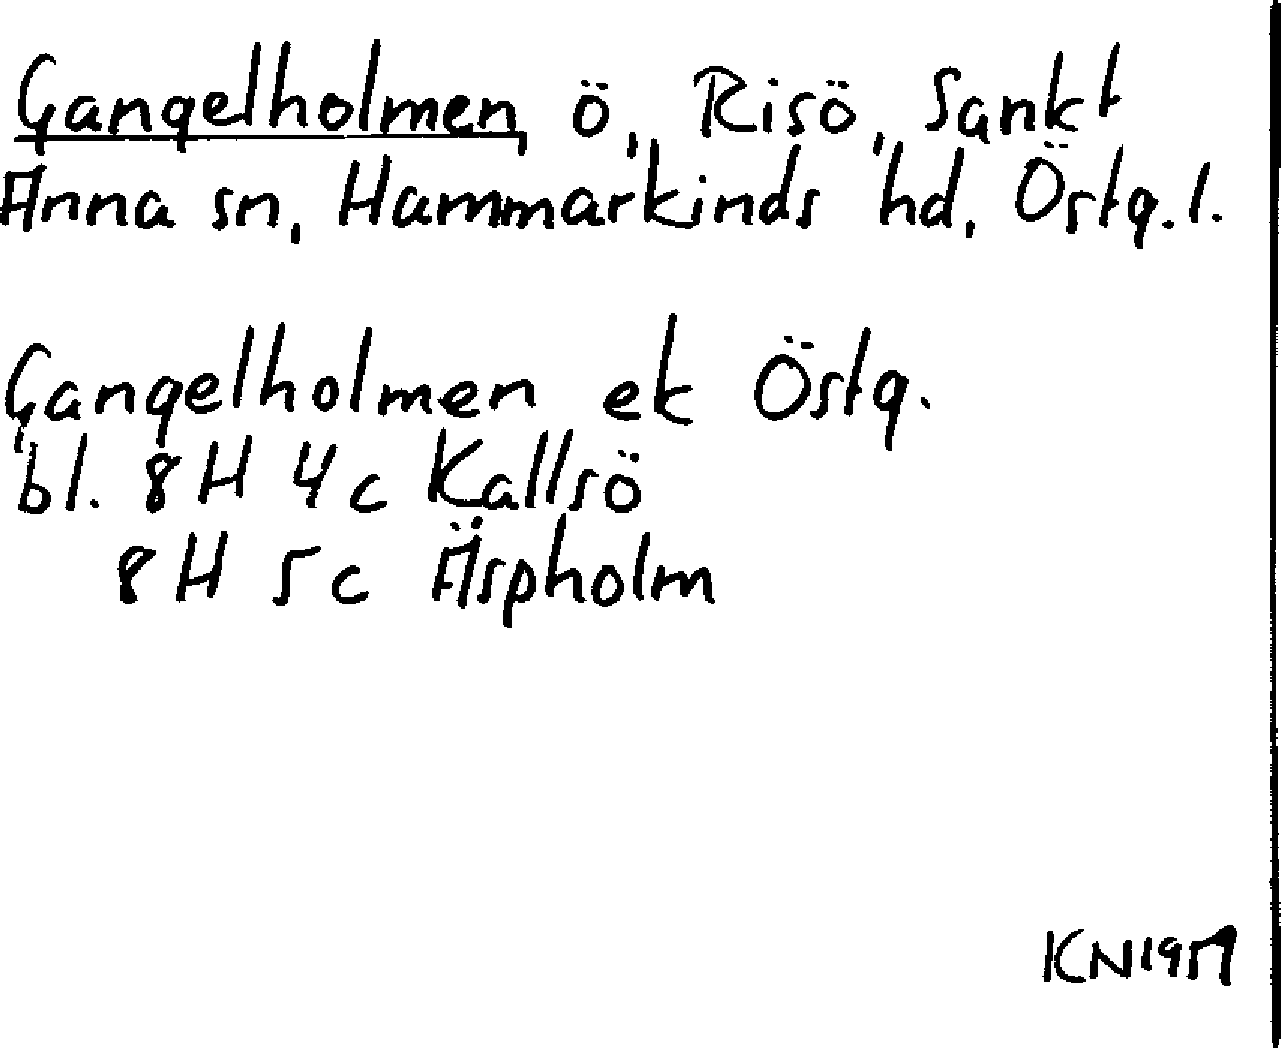 Gangelholmen, ö, Risö, Sankt
Anna sn, Hammarkinds hd, Östg.l.
Gangelholmen ek Östg.
bl. 8H 4c Kallsö
8H 5c Äspholm